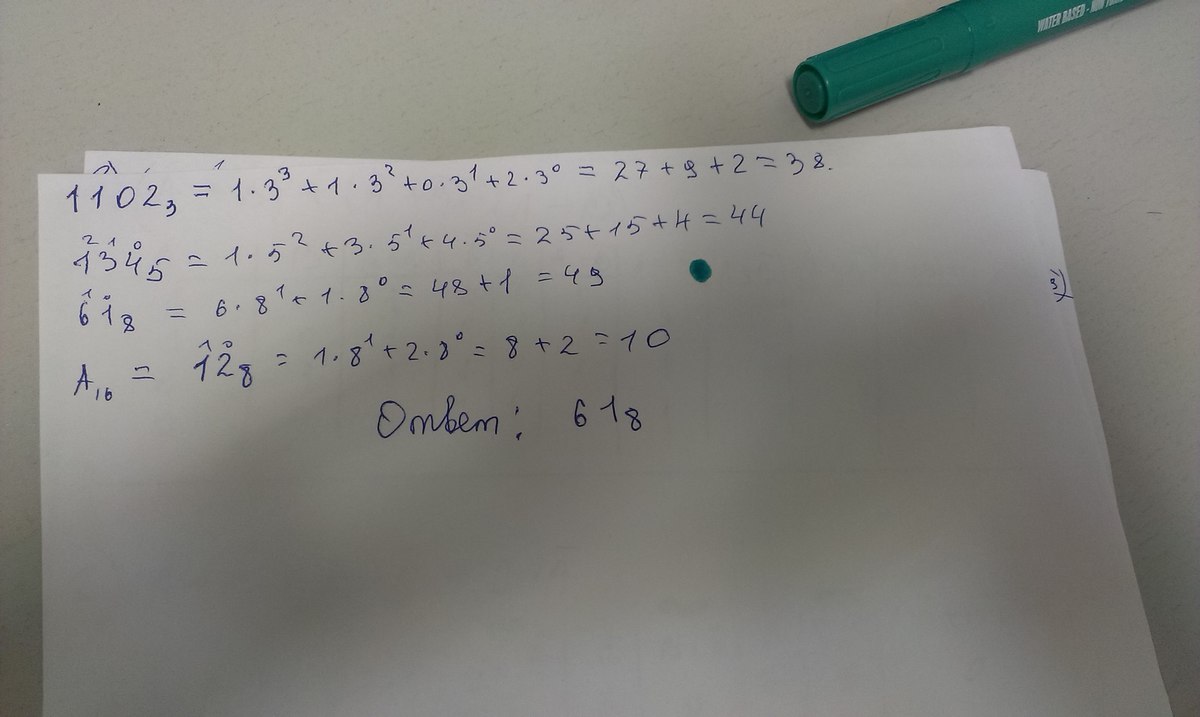 WATER BASED - NON
1102₃ = 1·3³ + 1·3² + 0·3¹ + 2·3⁰ = 27 + 9 + 2 = 38.
2 1 0
134₅ = 1·5² + 3·5¹ + 4·5⁰ = 25 + 15 + 4 = 44
1 0
61₈ = 6·8¹ + 1·8⁰ = 48 + 1 = 49
3)
1 0
A₁₆ = 12₈ = 1·8¹ + 2·8⁰ = 8 + 2 = 10
Ответ: 61₈